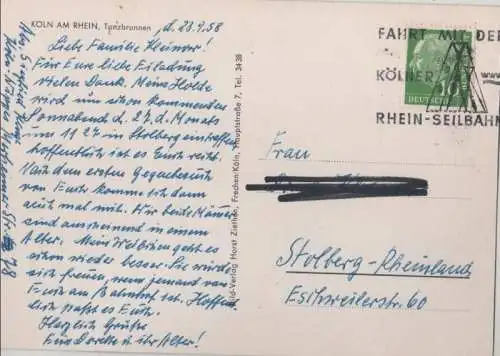 KÖLN AM RHEIN, Tanzbrunnen
d. 23.9.58
Liebe Familie
Für Eure liebe Einladung
vielen Dank. Meine Holde
wird nun schon kommenden
Sonnabend d. 27. d. Monats
um 11 27 in Stolberg eintreffen
hoffentlich ist es Euch recht.
Nach dem ersten Gegenbesuch
von Euch komme ich dann
auch mal mit. Wir beide Männer
sind anscheinend in einem
Alter. Mein Weibchen geht es
schon wieder besser. Sie würde
sich freuen, wenn jemand von
Euch am Bahnhof ist. Hoffentlich
paßt es Euch.
Herzlich Grüße
Eure Dorette u. ihr Alter!
Köln-
Str. 78
Bild-Verlag Horst Ziethen, Frechen/Köln, Hauptstraße 7, Tel. 3438
FAHRT MIT DER
KÖLNER
RHEIN-SEILBAHN
DEUTSCHE
10
Frau
Stolberg-Rheinland
Eschweilerstr. 60